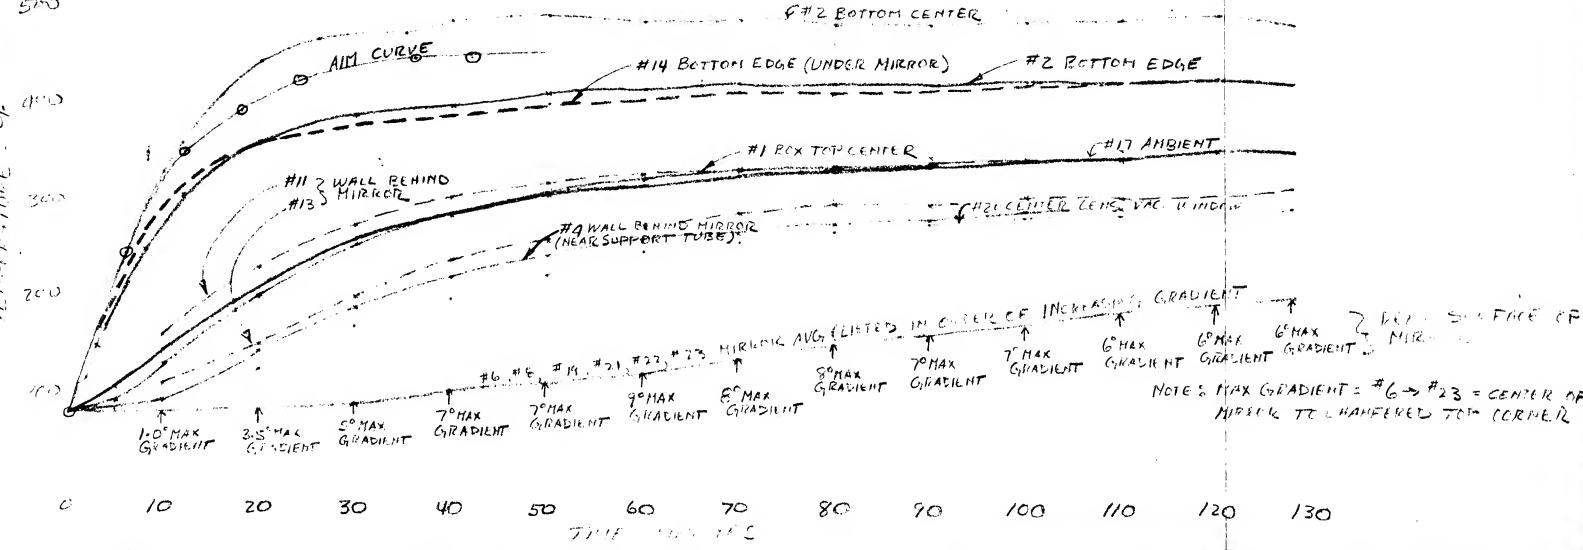 500
#2 BOTTOM CENTER
AIM CURVE
#14 BOTTOM EDGE (UNDER MIRROR)
#2 BOTTOM EDGE
400
#1 BOX TOP CENTER
#17 AMBIENT
#11
#13
WALL BEHIND
MIRROR
300
CENTER LENS VAC. WINDOW
#4 WALL BEHIND MIRROR
(NEAR SUPPORT TUBE)
200
#6, #8, #19, #21, #22, #23 MIRROR AVG (LISTED IN ORDER OF INCREASING GRADIENT
SURFACE OF
100
1.0° MAX
GRADIENT
3.5° MAX
GRADIENT
5° MAX
GRADIENT
7° MAX
GRADIENT
7° MAX
GRADIENT
9° MAX
GRADIENT
8° MAX
GRADIENT
8° MAX
GRADIENT
7° MAX
GRADIENT
7° MAX
GRADIENT
6° MAX
GRADIENT
6° MAX
GRADIENT
6° MAX
GRADIENT
NOTE: MAX GRADIENT = #6 → #23 = CENTER OF
MIRROR TO CHAMFERED TOP CORNER
0 10 20 30 40 50 60 70 80 90 100 110 120 130
TIME